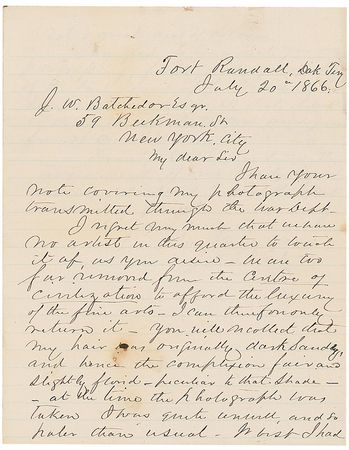 Fort Randall, Dak Ter
July 20" 1866.
J. W. Batchedor Esqr.
59 Beekman. St
New York. City
My dear Sir
I have your
note covering my photograph
transmitted through the War Dept.
I regret very much that we have
no artist in this quarter to touch
it up, as you desire - we are too
far removed from the Centre of
Civilization to afford the luxury
of the fine arts - I can therefore only
return it - You will recollect that
my hair was originally, dark Sandy,
and hence the complexion fair and
slightly florid - peculiar to that shade -
- at the time the photograph was
taken I was quite unwell, and so
paler than usual - I had